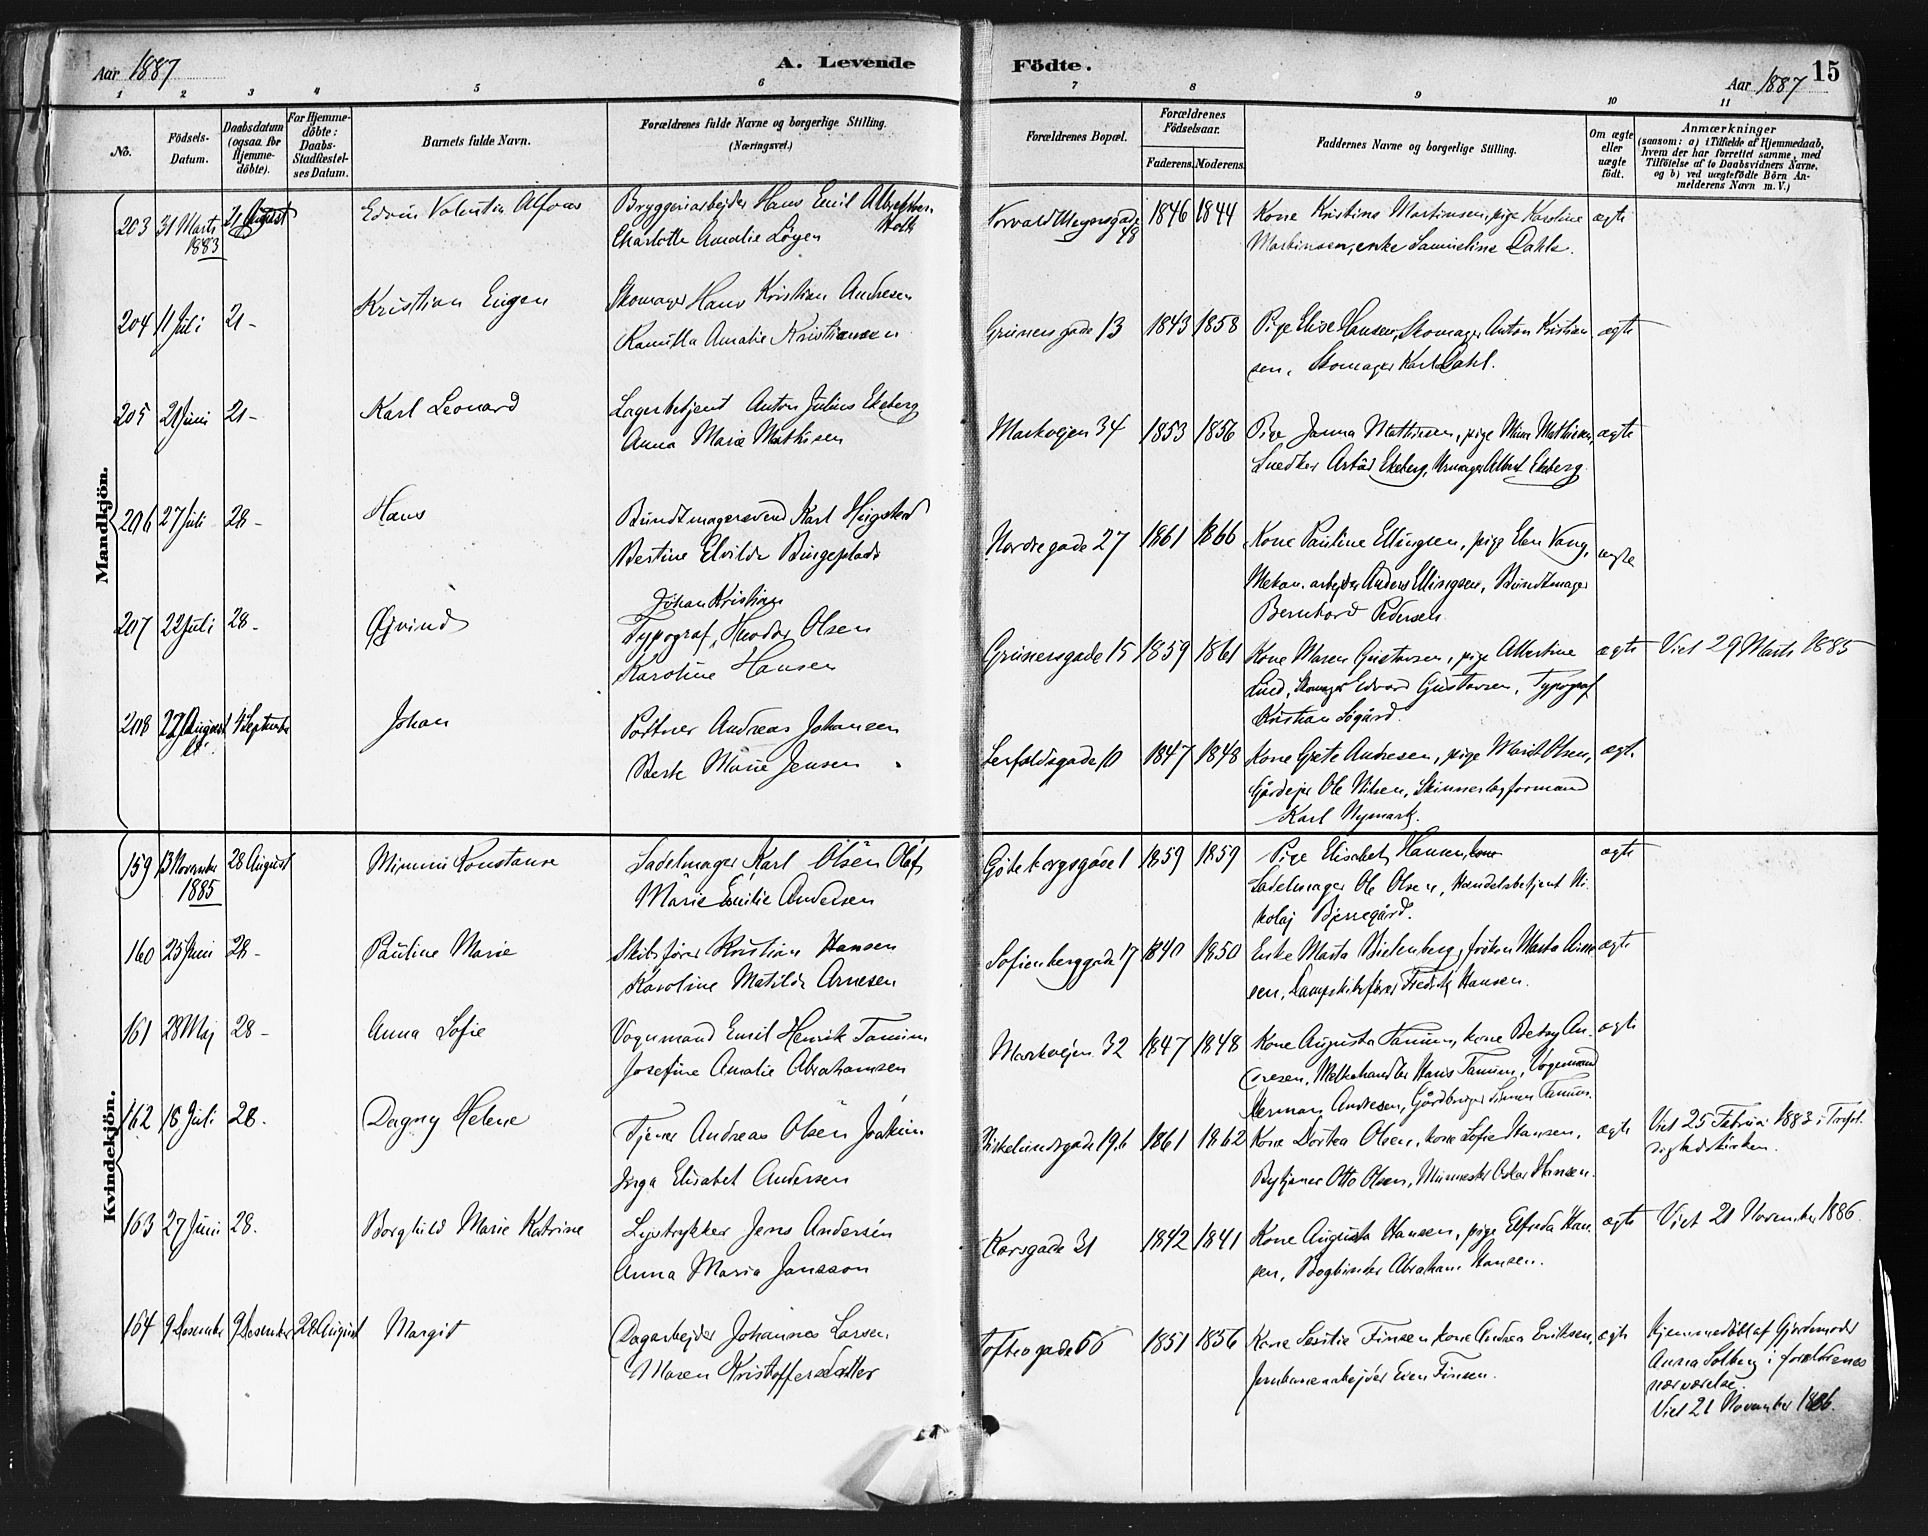 Aar 1887
A. Levende
Födte.
Aar 1887
15
1 2 3 4 5 6 7 8 9 10 11
No.
Födsels-Datum.
Daabsdatum (ogsaa for Hjemmedöbte).
For Hjemmedöbte: Daabs-Stadfæstelses Datum.
Barnets fulde Navn.
Forældrenes fulde Navne og borgerlige Stilling. (Næringsvei.)
Forældrenes Bopæl.
Forældrenes Födselsaar.
Faderens. Moderens.
Faddernes Navne og borgerlige Stilling.
Om ægte eller uægte födt.
Anmærkninger
(saasom: a) i Tilfælde af Hjemmedaab, hvem der har forrettet samme, med Tilföielse af to Daabsvidners Navne, og b) ved uægtefödte Börn Anmelderens Navn m. V.)
Mandkjön.
203 31 Marts 1883 21 August Edvin Valentin Alfons
Bryggeriarbejder Hans Emil
Charlotte Amalie
48 1846 1844
Kone Kristine Martinsen, pige Karoline
Martinsen, enke Samueline Dahls. ægte
204 11 Juli 21 - Kristian Eugen
Skomager Hans Kristian Andresen
Kamilla Amalie Kristiansen
Grünersgade 13 1843 1858
Pige Elise Hansen, Skomager Anton Kristian
sen, Skomager Karl Dahl. ægte
205 21 Juni 21 - Karl Leonard
Lagerbetjent Anton Julius Ekeberg
Anna Marie Mathisen
Markvejen 34 1853 1856
Pige Janna Mathisen, pige Mina Mathisen,
Snedker Ekeberg, Urmager Albert Ekeberg. ægte
206 27 Juli 28 - Hans
Bundtmagersvend Karl
Bertine Elvilde
Nordregade 27 1861 1866
Kone Pauline Ellingsen, pige Elen Vang,
Mekan. arbejder Anders Ellingsen, Bundtmager
Bernhard Pedersen. ægte
207 22 Juli 28 - Øjvind
Johan Kristian
Typograf, Theodor Olsen
Karoline Hansen
Grünersgade 15 1859 1861
Kone Maren Gustavsen, pige Albertine
Lind, Skomager Edvard Gustavsen, Typograf
Kristian ægte
Viet 29 Marts 1885
208 22 August 4 September Johan
Portner Andreas Johansen
Berte Marie Jensen
10 1847 1848
Kone Grete Andresen, pige Marit Olsen,
Gårdejer Ole Nilsen,
Karl Nymark. ægte
Kvindekjön.
159 13 November 1885 28 August Mimmi Konstanse
Sadelmager, Karl Olsen Olaf
Marie Emilie Andersen
Göteborgsgade 1 1859 1859
Pige Elisabet Hansen,
Sadelmager Ole Olsen, Handelsbetjent Ni-
kolaj Bjerregård. ægte
160 25 Juni 28 - Pauline Marie
Skibsfører Kristian Hansen
Karoline Matilde Arnesen
Sofienberggade 17 1840 1850
Enke Marta Bielenberg, frøken Marta Arne
sen, Dampskibsfører Fredrik Hansen. ægte
161 28 Maj 28 - Anna Sofie
Vognmand Emil Henrik Tanum
Josefine Amalie Abrahamsen
Markvejen 32 1847 1848
Kone Augusta Tanum, kone Betsy An-
dresen, Melkehandler Hans Tanum, Vognmand
Herman Andresen, Gårdbruger Simen Tanum. ægte
162 18 Juli 28. Dagny Helene
Tjener Andreas Olsen Joakim
Inga Elisabet Andersen
Birkelundsgade 19b 1861 1862
Kone Dortea Olsen, kone Sofie Hansen,
Bytjener Otto Olsen, Oskar Hansen. ægte
Viet 25 Februar 1883 i Trefol-
dighedskirken.
163 27 Juni 28. Borghild Marie Katrine
Lystrykker Jens Andersén
Anna Maria Jansson
Korsgade 31 1842 1841
Kone Augusta Hansen, pige Elfreda Han-
sen, Bogbinder Abraham Hansen. ægte
Viet 21 November 1886.
164 9 Desember 9 Desember 28 August Margit
Dagarbejder Johannes Larsen
Maren Kristoffersdatter
Toftesgade 66 1851 1856
Kone Sesilie Finsen kone Andrea Eriksen,
Jernbanearbejder Even Finsen. ægte
Hjemmedöbt af Gjordemoder
Anna Solberg i forældrenes
nærværelse.
Viet 21 November 1886.